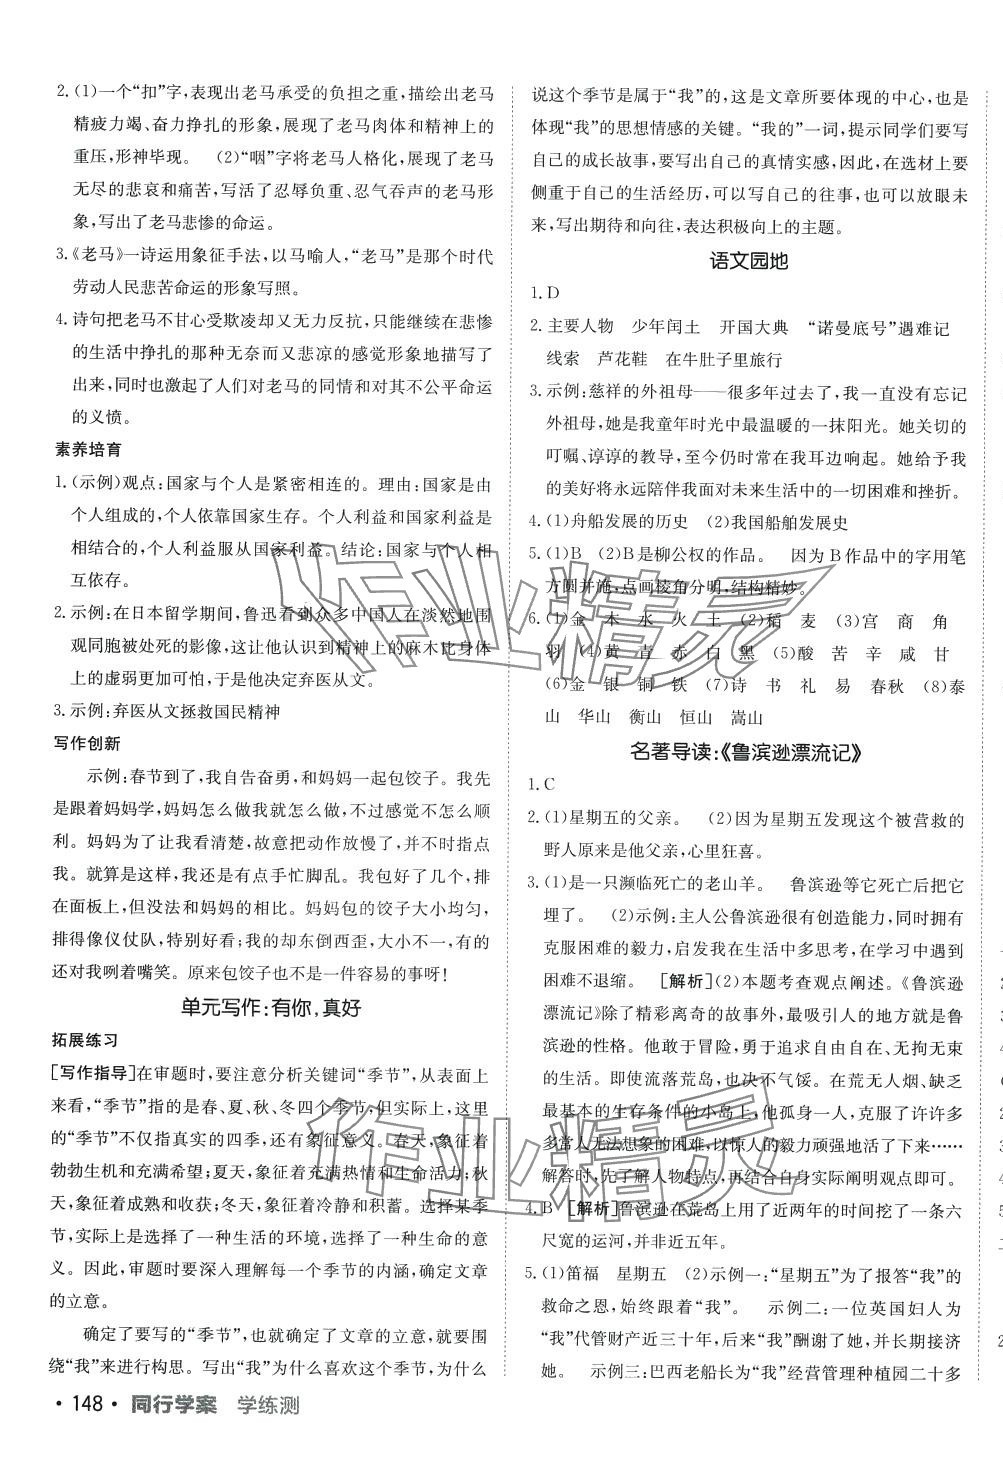 2. (1)一个“扣”字,表现出老马承受的负担之重,描绘出老马
精疲力竭、奋力挣扎的形象,展现了老马肉体和精神上的
重压,形神毕现。 (2)“咽”字将老马人格化,展现了老马
无尽的悲哀和痛苦,写活了忍辱负重、忍气吞声的老马形
象,写出了老马悲惨的命运。
3.《老马》一诗运用象征手法,以马喻人,“老马”是那个时代
劳动人民悲苦命运的形象写照。
4. 诗句把老马不甘心受欺凌却又无力反抗,只能继续在悲惨
的生活中挣扎的那种无奈而又悲凉的感觉形象地描写了
出来,同时也激起了人们对老马的同情和对其不公平命运
的义愤。
素养培育
1. (示例)观点:国家与个人是紧密相连的。理由:国家是由
个人组成的,个人依靠国家生存。个人利益和国家利益是
相结合的,个人利益服从国家利益。结论:国家与个人相
互依存。
2. 示例:在日本留学期间,鲁迅看到众多中国人在淡然地围
观同胞被处死的影像,这让他认识到精神上的麻木比身体
上的虚弱更加可怕,于是他决定弃医从文。
3. 示例:弃医从文拯救国民精神
写作创新
示例:春节到了,我自告奋勇,和妈妈一起包饺子。我先
是跟着妈妈学,妈妈怎么做我就怎么做,不过感觉不怎么顺
利。妈妈为了让我看清楚,故意把动作放慢了,并不时指点
我。就算是这样,我还是有点手忙脚乱。我包的饺子几个,排
在面板上,但没法和妈妈的相比。妈妈包的饺子大小均匀,
排得像仪仗队,特别好看;我的却东倒西歪,大小不一,有的
还对我咧着嘴笑。原来包饺子也不是一件容易的事呀!
单元写作:有你,真好
拓展练习
[写作指导]在审题时,要注意分析关键词“季节”,从表面上
来看,“季节”指的是春、夏、秋、冬四个季节;但实际上,这里
的“季节”不仅指真实的四季,还有象征意义。春天,象征着
勃勃生机和充满希望;夏天,象征着充满热情和生命活力;秋
天,象征着成熟和收获;冬天,象征着冷静和积蓄。选择某季
节,实际上是选择了一种生活的环境,选择了一种生命的意
义。因此,审题时要深入理解每一个季节的内涵,确定文章
的立意。
确定了要写的“季节”,也就确定了文章的立意,就要围
绕“我”来进行构思。写出“我”为什么喜欢这个季节,为什么
说这个季节是属于“我”的,这是文章所要体现的中心,也是
体现“我”的思想情感的关键。“我的”一词,提示同学们要写
自己的成长故事,要写出自己的真情实感,因此,在选材上要
侧重于自己的生活经历,可以写自己的往事,也可以放眼未
来,写出期待和向往,表达积极向上的主题。
语文园地
1. D
2. 主要人物 少年闰土 开国大典 “诺曼底号”遇难记
线索 芦花鞋 在牛肚子里旅行
3. 示例:慈祥的外祖母——很多年过去了,我一直没有忘记
外祖母,她是我童年时光中最温暖的一抹阳光。她关切的
叮嘱、谆谆的教导,至今仍时常在我耳边响起。她给予我
的美好将永远陪伴我面对未来生活中的一切困难和挫折。
4. (1)舟船发展的历史 (2)我国船舶发展史
5. (1)B (2)B是柳公权的作品。 因为B作品中的字用笔
方圆并施,点画棱角分明,结构精妙。
6. (1)金 木 水 火 土 (2)稻 麦 (3)宫 商 角
羽 (4)黄 青 赤 白 黑 (5)酸 苦 辛 咸 甘
(6)金 银 铜 铁 (7)诗 书 礼 易 春秋 (8)泰
山 华山 衡山 恒山 嵩山
名著导读:《鲁滨逊漂流记》
1. C
2. (1)星期五的父亲。 (2)因为星期五发现这个被营救的
野人原来是他父亲,心里狂喜。
3. (1)是一只濒临死亡的老山羊。 鲁滨逊等它死亡后把它
埋了。 (2)示例:主人公鲁滨逊很有创造能力,同时拥有
克服困难的毅力,启发我在生活中多思考,在学习中遇到
困难不退缩。 [解析](2)本题考查观点阐述。《鲁滨逊
漂流记》除了精彩离奇的故事外,最吸引人的地方就是鲁
滨逊的性格。他敢于冒险,勇于追求自由自在、无拘无束
的生活。即使流落荒岛,也决不气馁。在荒无人烟、缺乏
最基本的生存条件的小岛上,他孤身一人,克服了许许多
多常人无法想象的困难,以惊人的毅力顽强地活了下来……
解答时,先了解人物特点,再结合自身实际阐明观点即可。
4. B [解析]鲁滨逊在荒岛上用了近两年的时间挖了一条六
尺宽的运河,并非近五年。
5. (1)笛福 星期五 (2)示例一:“星期五”为了报答“我”的
救命之恩,始终跟着“我”。 示例二:一位英国妇人为
“我”代管财产近三十年,后来“我”酬谢了她,并长期接济
她。 示例三:巴西老船长为“我”经营管理种植园二十多
·148· 同行学案 学练测
作业精灵
作业精灵